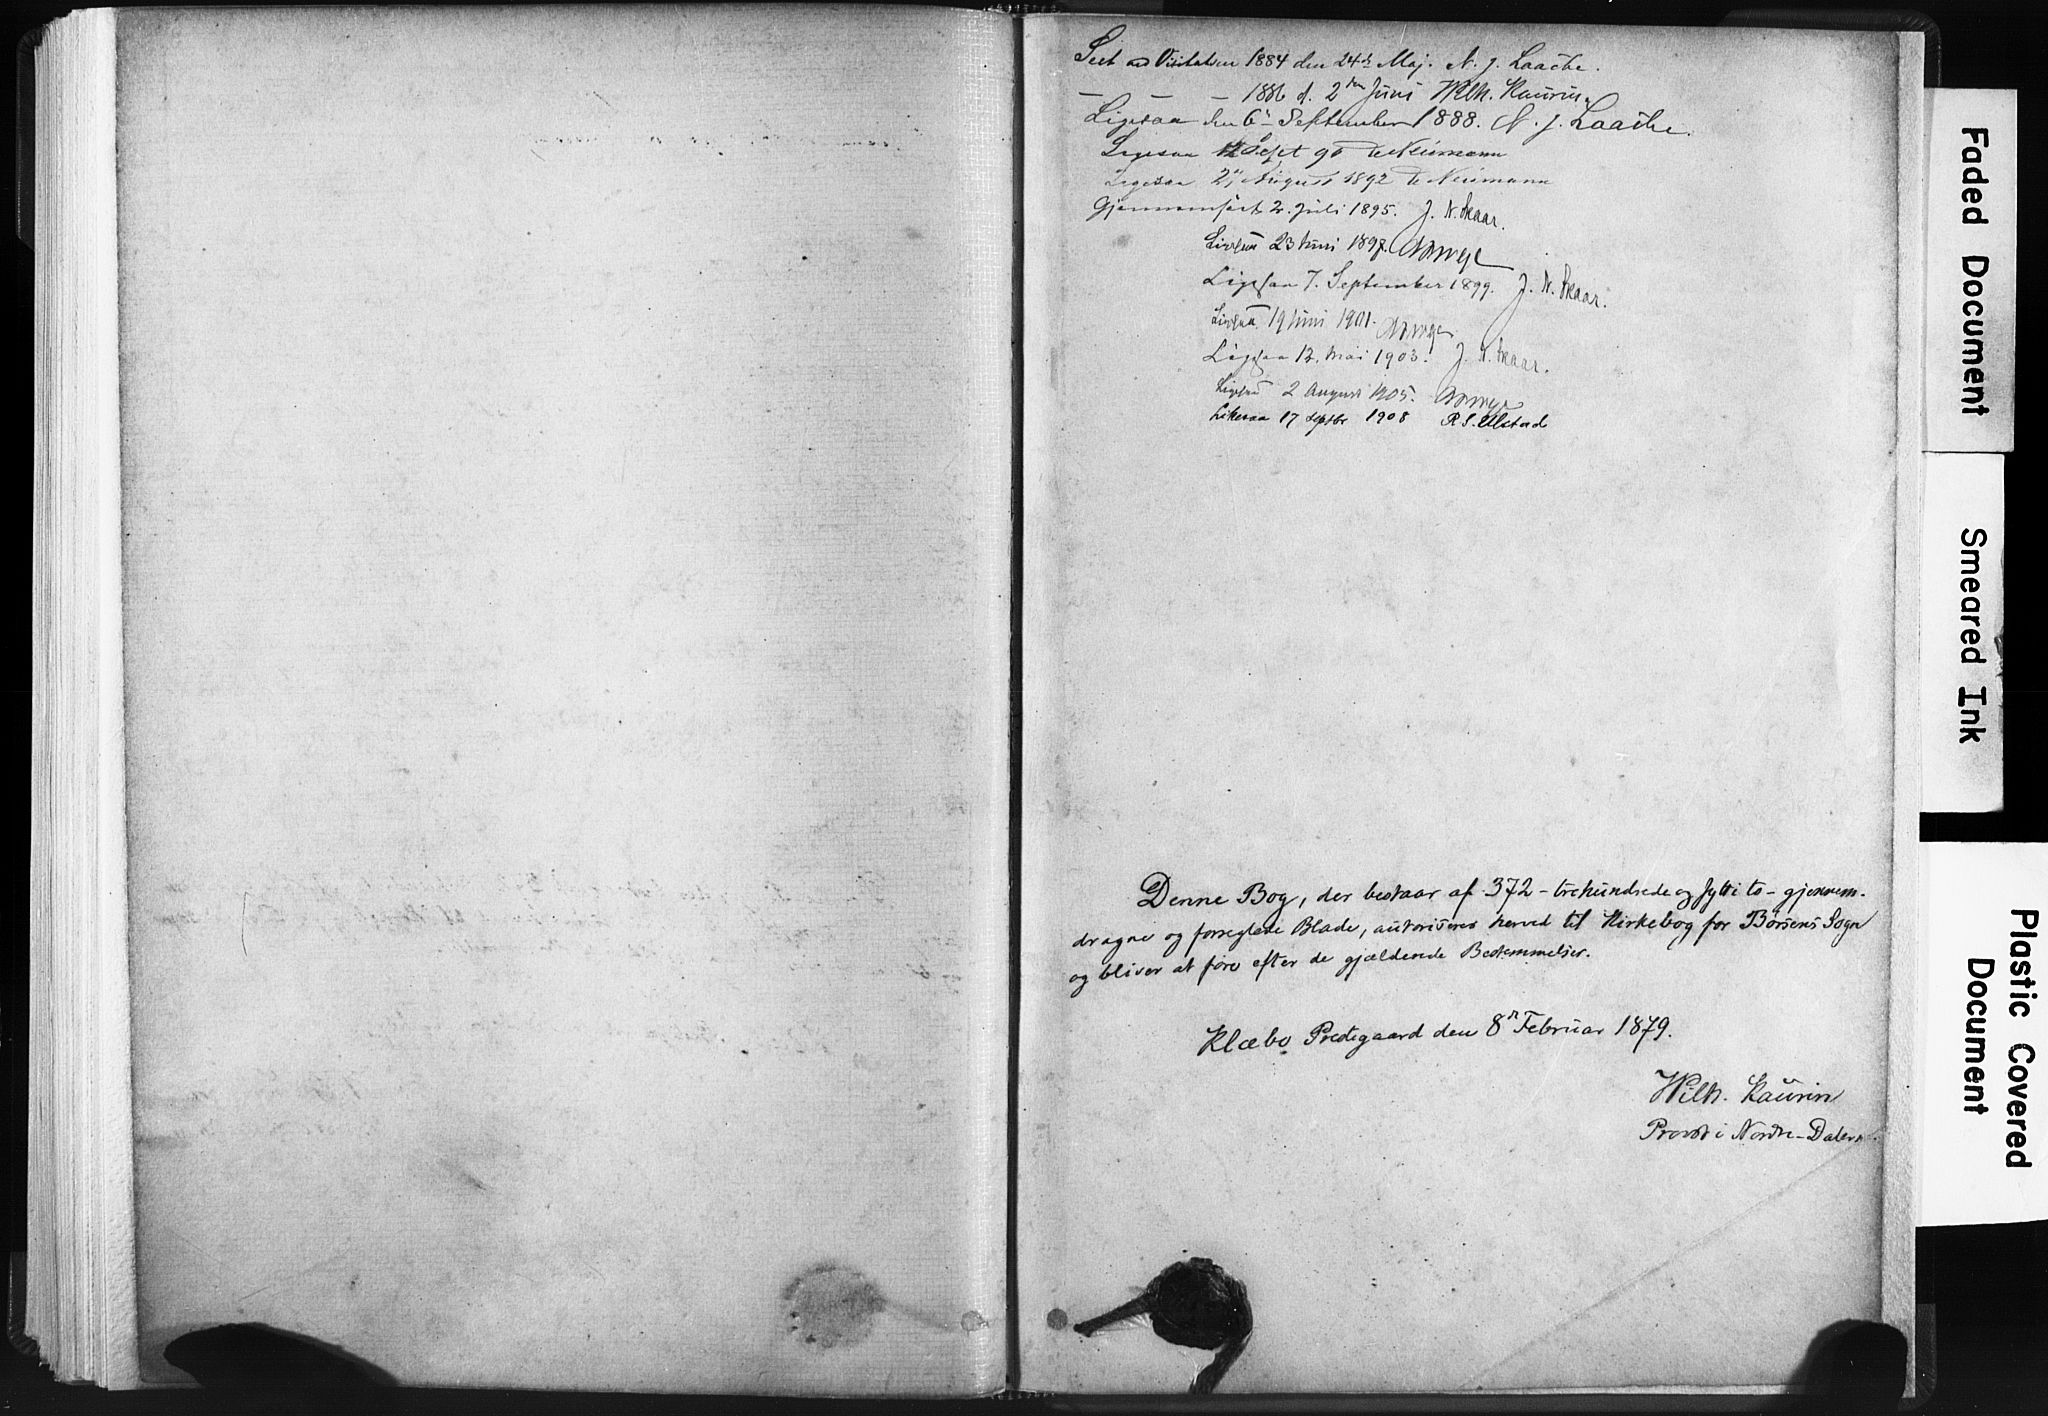 Seet ved Visitatsen 1884 den 24de Maj. N. J. Laache.
— — — 1886 d. 2den Juni Wilh. Kaurin.
Ligesaa den 6te September 1888. N. J. Laache.
Ligesaa Sept 90 Neumann
Ligesaa 2 August 1892 Neumann
Gjennemført 2. Juli 1895. J. N. Skaar.
Ligesaa 23 Juni 1897.
Ligesaa 7. September 1899. J. N. Skaar.
Ligesaa 19 Juni 1901.
Ligesaa 12. Mai 1903. J. N. Skaar.
Ligesaa 2 August 1905.
Likesaa 17 septbr 1908 R S. Ulstad
Denne Bog, der bestaar af 372 - trehundrede og sytti to - gjennem-
dragne og forseglede Blade, autoriseres herved til Kirkebog for Børsens Sogn
og bliver at føre efter de gjældende Bestemmelser.
Klæbo Prestegaard den 8de Februar 1879.
Wilh. Kaurin
Provst i Nordre-Dalerne.
Faded Document
Smeared Ink
Plastic Covered
Document